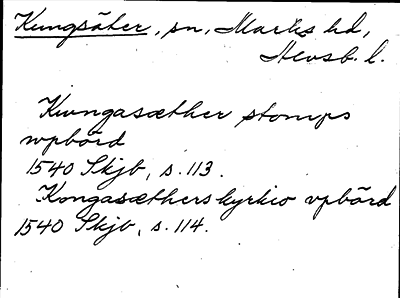 Kungsäter, sn, Marks hd,
Älvsb. l.
Kwngasæther stomps
wpbörd
1540 Skjb, s. 113.
Kongasætherskyrkio vpbörd
1540 Skjb, s. 114.